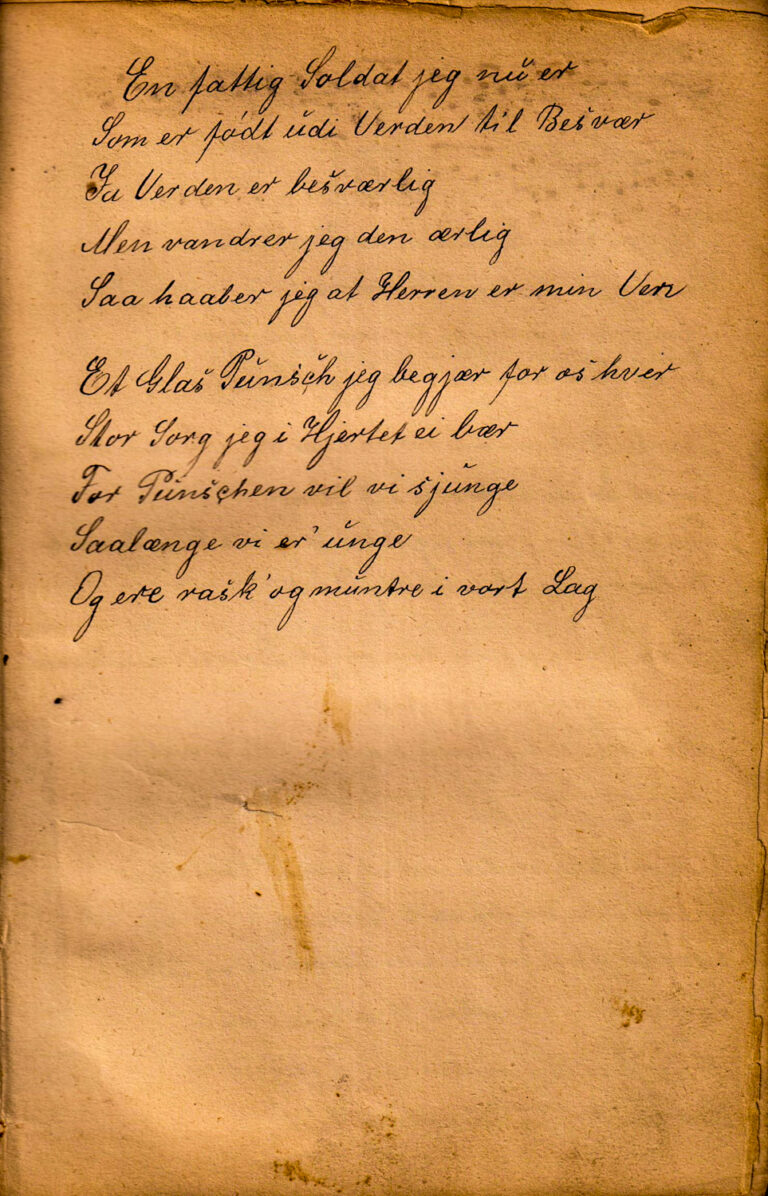 En fattig Soldat jeg nu er
Som er født udi Verden til Besvær
Ja Verden er besværlig
Men vandrer jeg den ærlig
Saa haaber jeg at Herren er min Ven
Et Glas Punsch jeg begjær for os hver
Stor Sorg jeg i Hjertet ei bær
For Punschen vil vi sjunge
Saalænge vi er' unge
Og ere rask' og muntre i vort Lag